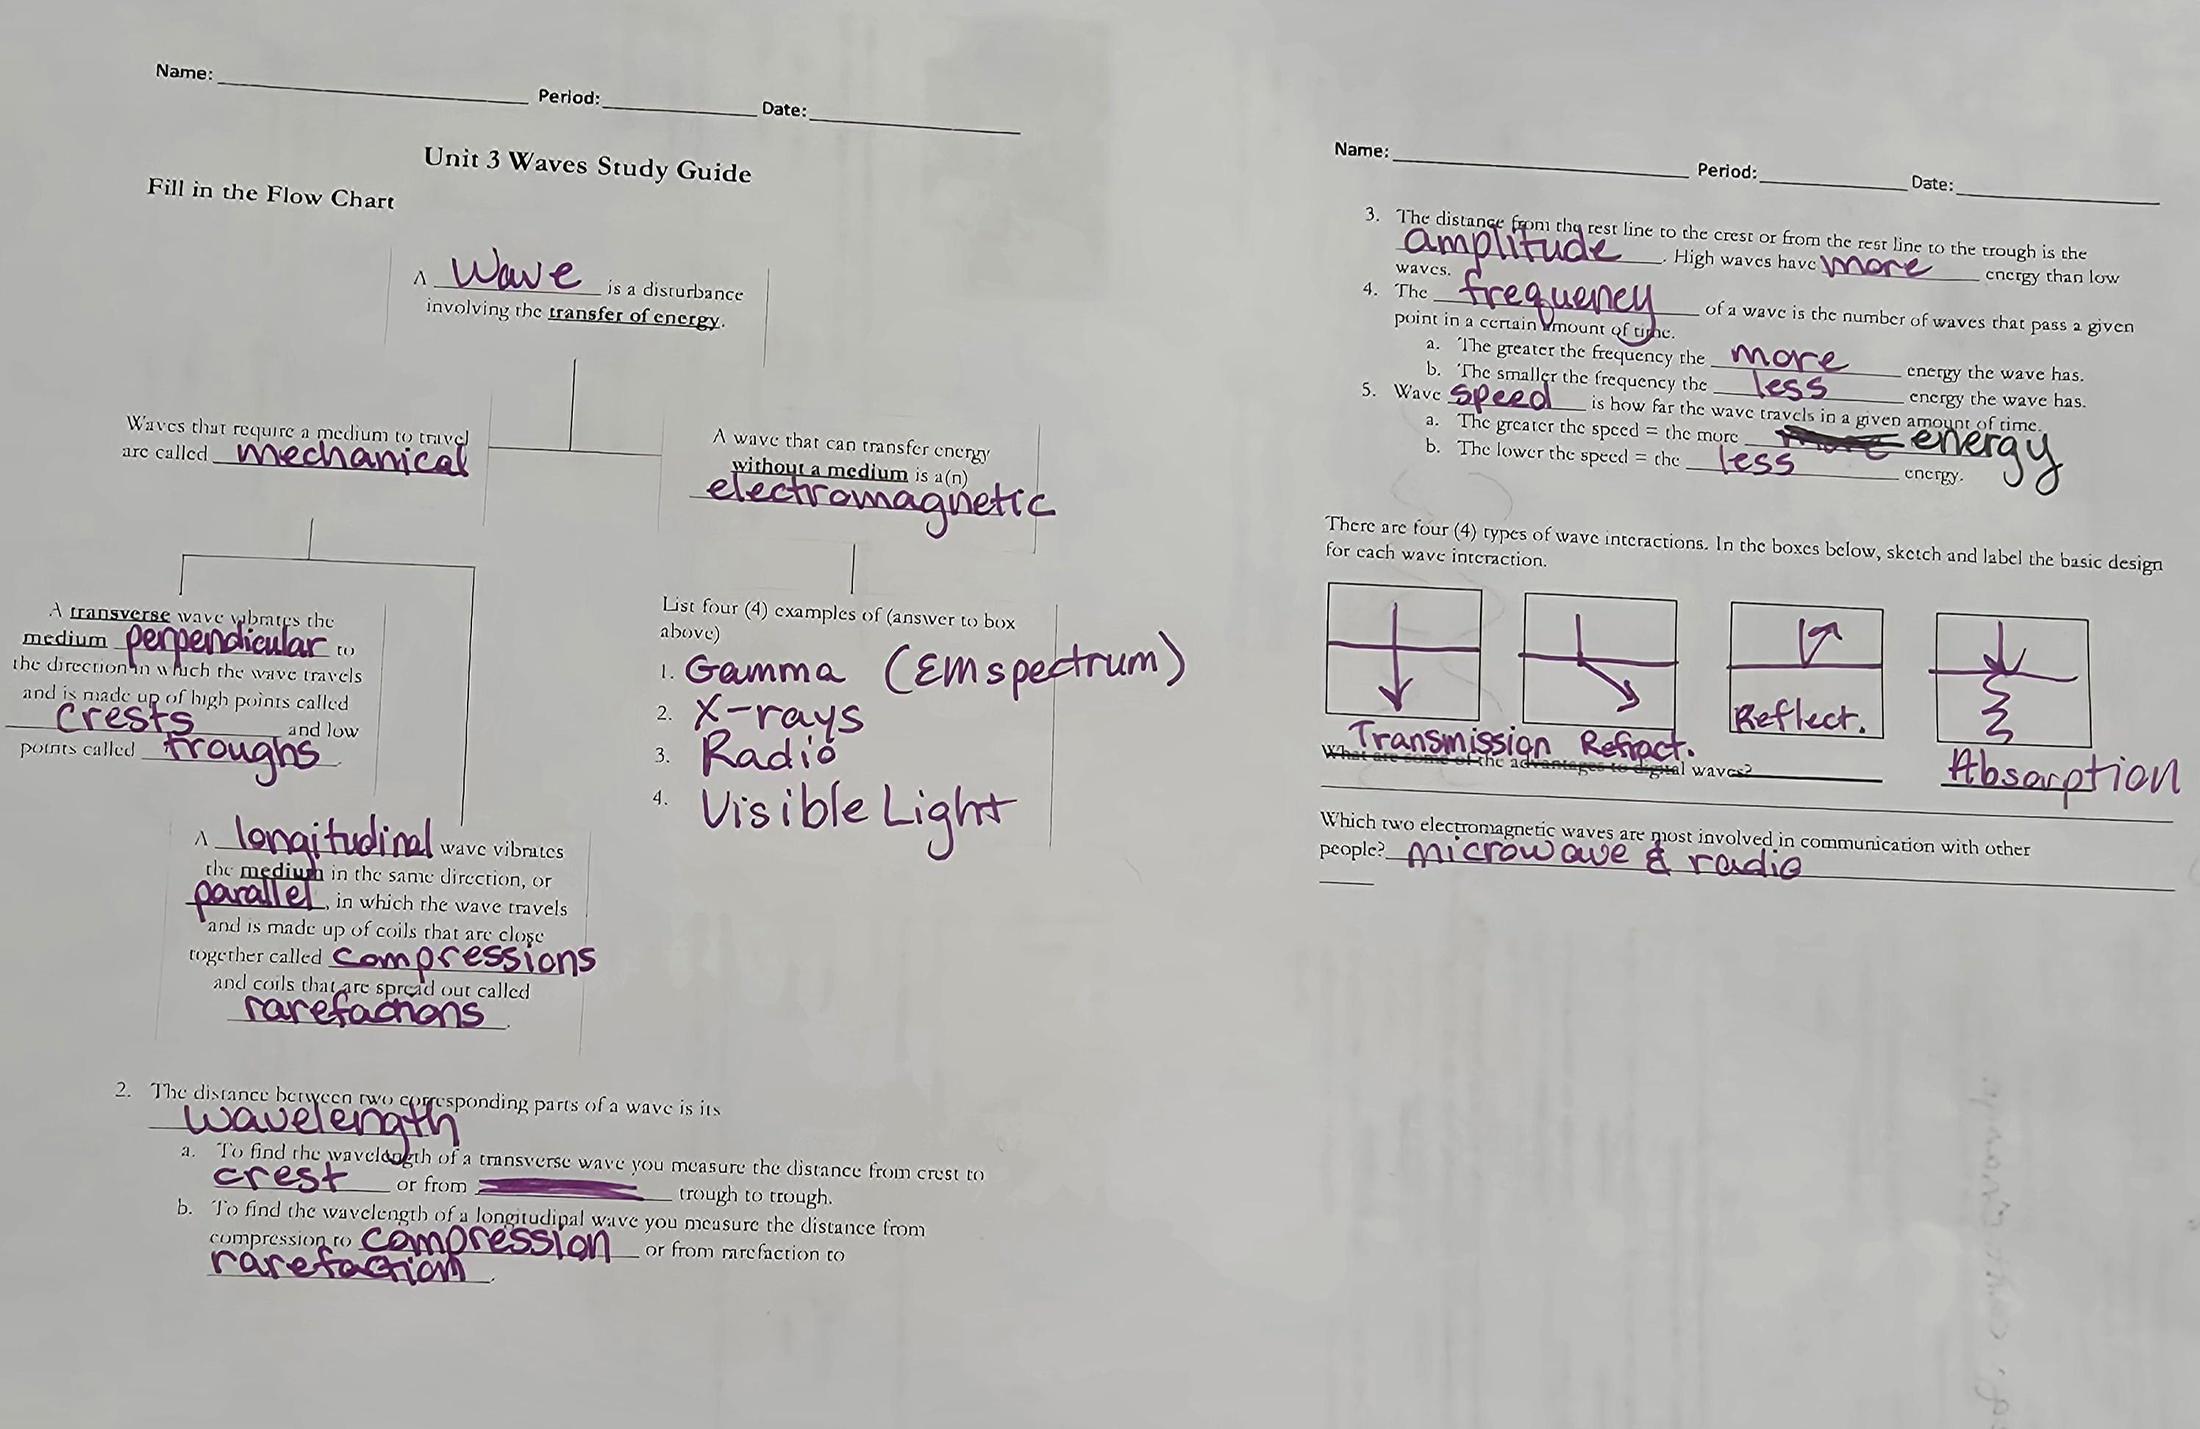 Name: Period: Date:
Unit 3 Waves Study Guide
Fill in the Flow Chart
A wave is a disturbance
involving the transfer of energy.
Waves that require a medium to travel
are called mechanical
A wave that can transfer energy
without a medium is a(n)
electromagnetic
A transverse wave vibrates the
medium perpendicular to
the direction in which the wave travels
and is made up of high points called
crests and low
points called troughs.
List four (4) examples of (answer to box
above)
1. Gamma (EM spectrum)
2. X-rays
3. Radio
4. Visible Light
A longitudinal wave vibrates
the medium in the same direction, or
parallel, in which the wave travels
and is made up of coils that are close
together called compressions
and coils that are spread out called
rarefactions.
2. The distance between two corresponding parts of a wave is its
wavelength
a. To find the wavelength of a transverse wave you measure the distance from crest to
crest or from trough to trough.
b. To find the wavelength of a longitudinal wave you measure the distance from
compression to compression or from rarefaction to
rarefaction.
Name: Period: Date:
3. The distance from the rest line to the crest or from the rest line to the trough is the
amplitude. High waves have more energy than low
waves.
4. The frequency of a wave is the number of waves that pass a given
point in a certain amount of time.
a. The greater the frequency the more energy the wave has.
b. The smaller the frequency the less energy the wave has.
5. Wave speed is how far the wave travels in a given amount of time.
a. The greater the speed = the more energy
b. The lower the speed = the less energy.
There are four (4) types of wave interactions. In the boxes below, sketch and label the basic design
for each wave interaction.
Transmission Refract. Reflect. Absorption
What are some of the advantages to digital waves?
Which two electromagnetic waves are most involved in communication with other
people? microwave & radio